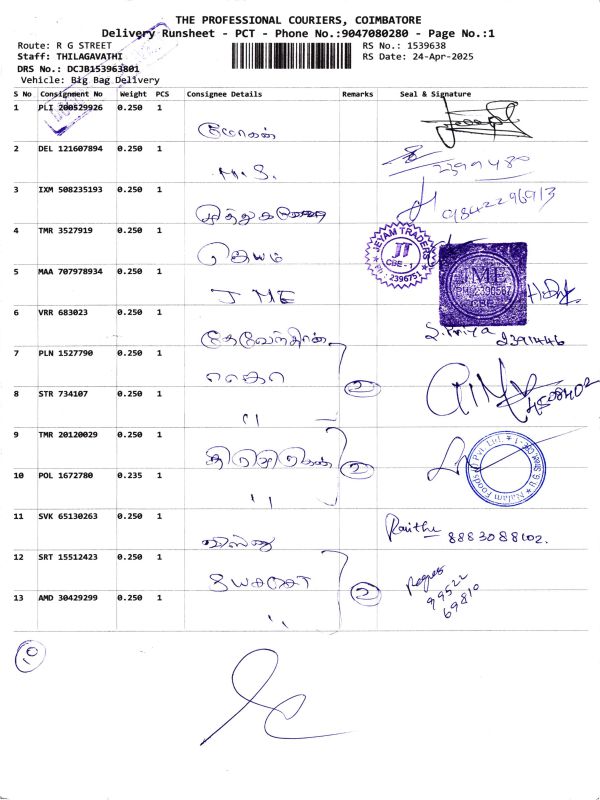 THE PROFESSIONAL COURIERS, COIMBATORE
Delivery Runsheet - PCT - Phone No.:9047080280 - Page No.:1
Route: R G STREET
RS No.: 1539638
Staff: THILAGAVATHI
RS Date: 24-Apr-2025
DRS No.: DCJB153963801
Vehicle: Big Bag Delivery
S No Consignment No Weight PCS Consignee Details Remarks Seal & Signature
1 PLI 200529926 0.250 1
மோகன்
2 DEL 121607894 0.250 1
M.S.
2399480
3 IXM 508235193 0.250 1
9842296913
4 TMR 3527919 0.250 1
ஜெயம்
JEYAM TRADERS
JT
CBE - 1
Ph : 2396751
5 MAA 707978934 0.250 1
JME
JME
6 VRR 683023 0.250 1
தேவேந்திரன்
S. Priya
2391446
7 PLN 1527790 0.250 1
2
8 STR 734107 0.250 1
"
9 TMR 20120029 0.250 1
2
Nalam Foods Pvt. Ltd.
10 POL 1672780 0.235 1
"
11 SVK 65130263 0.250 1
விஷ்ணு
8883088102.
12 SRT 15512423 0.250 1
2
99522
69810
13 AMD 30429299 0.250 1
"
10